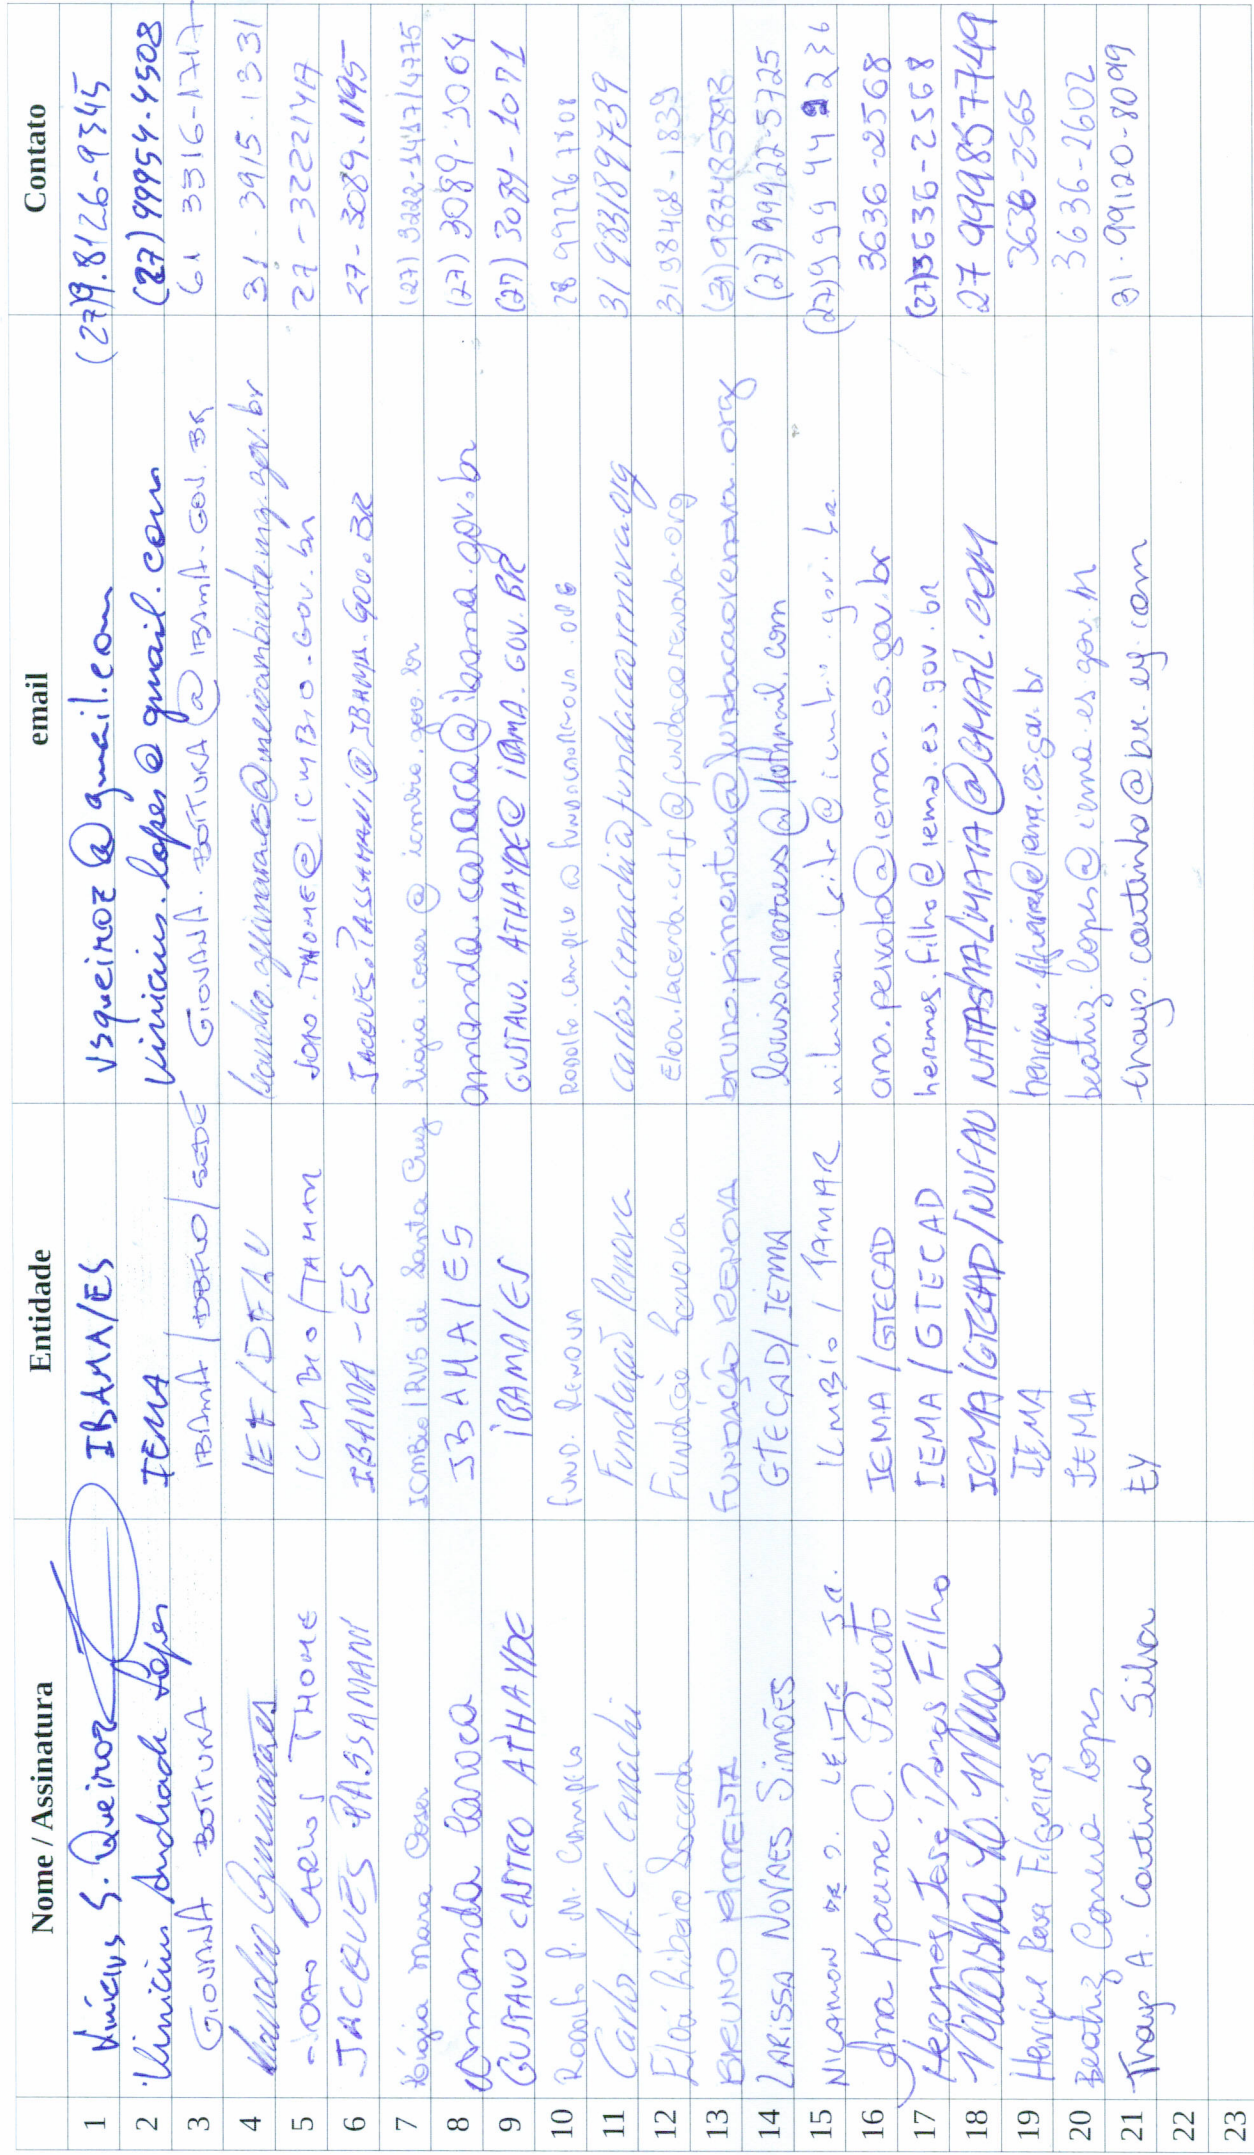 Nome / Assinatura Entidade email Contato
1 Vinícius S. Queiroz IBAMA/ES vsqueiroz@gmail.com (27)9.8126-9345
2 Vinicius Andrade Lopes IEMA vinicius.lopes@gmail.com (27) 99954-4508
3 GIOVANA BOTTURA IBAMA / / SEDE GIOVANA.BOTTURA@IBAMA.GOV.BR 61 3316-1717
4 Guimarães IEF / meioambiente.mg.gov.br 31. 3915.1331
5 JOÃO CARLOS THOMÉ ICMBIO/TAMAR JOAO.THOME@ICMBIO.GOV.BR 27-32221417
6 JACQUES PASSAMANI IBAMA - ES JACQUES.PASSAMANI@IBAMA.GOV.BR 27-3089.1195
7 Ligia Mara Coser ICMBio/RVS de Santa Cruz ligia.coser@icmbio.gov.br (27) 3222-1417/4775
8 Amanda Caroca IBAMA/ES amanda.caroca@ibama.gov.br (27) 3089-1064
9 GUSTAVO CASTRO ATHAYDE IBAMA/ES GUSTAVO.ATHAYDE@IBAMA.GOV.BR (27) 3089-1071
10 Rodolfo P. M. Campelo FUND. RENOVA 28 99276
11 Carlos A. C. Cenachi Fundação Renova carlos.cenachi@fundacaorenova.org 31 983189739
12 Eloá Ribeiro Lacerda Fundação Renova Eloa.lacerda.crtf@fundacaorenova.org 31 98468-1839
13 BRUNO PIMENTA FUNDAÇÃO RENOVA bruno.pimenta@fundacaorenova.org (31)
14 LARISSA NOVAES SIMÕES GTECAD/IEMA larissanovaess@hotmail.com (27) 99922-5725
15 NILAMON DE O. LEITE JR. ICMBIO / TAMAR (27)99 949 2236
16 Ana Karine C. Peixoto IEMA/GTECAD ana.peixoto@iema.es.gov.br 3636-2568
17 Hermes José Filho IEMA/GTECAD hermes.filho@iema.es.gov.br (27)3636-2568
18 Natasha IEMA/GTECAD/NUFAU NATASHALMAIA@GMAIL.COM 27 999857749
19 Henrique Rosa Filgueiras IEMA 3636-2565
20 Beatriz Correia Lopes IEMA beatriz.lopes@iema.es.gov.br 3636-2602
21 Thays A. Coutinho Silva EY thays.coutinho@br.ey.com 31.99120-8099
22
23